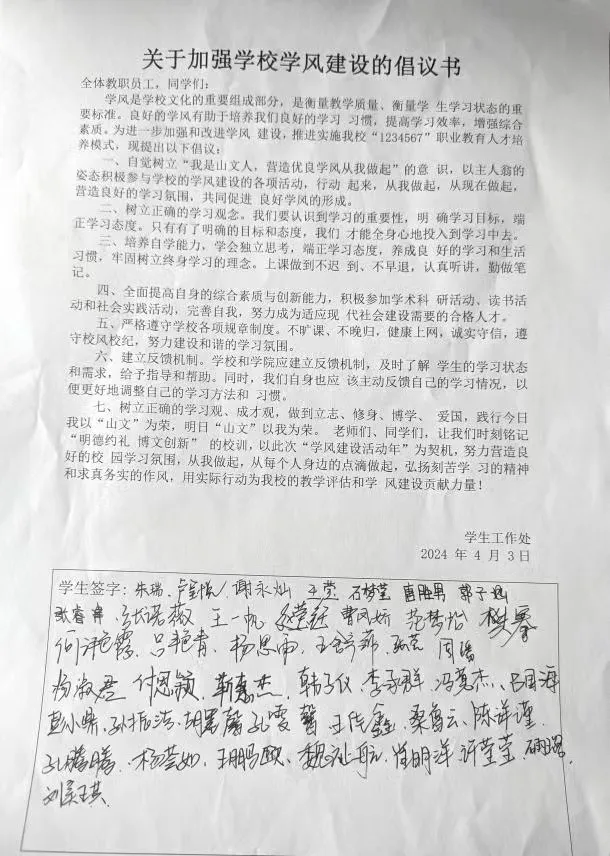 关于加强学校学风建设的倡议书
全体教职员工，同学们：
学风是学校文化的重要组成部分，是衡量教学质量、衡量学 生学习状态的重
要标准。良好的学风有助于培养我们良好的学习 习惯，提高学习效率，增强综合
素质。为进一步加强和改进学风 建设，推进实施我校“1234567”职业教育人才培
养模式，现提出以下倡议：
一、自觉树立“我是山文人，营造优良学风从我做起”的意 识，以主人翁的
姿态积极参与学校的学风建设的各项活动，行动 起来，从我做起，从现在做起，
营造良好的学习氛围，共同促进 良好学风的形成。
二、树立正确的学习观念。我们要认识到学习的重要性，明 确学习目标，端
正学习态度。只有有了明确的目标和态度，我们 才能全身心地投入到学习中去。
三、培养自学能力，学会独立思考，端正学习态度，养成良 好的学习和生活
习惯，牢固树立终身学习的理念。上课做到不迟 到、不早退，认真听讲，勤做笔
记。
四、全面提高自身的综合素质与创新能力，积极参加学术科 研活动、读书活
动和社会实践活动，完善自我，努力成为适应现 代社会建设需要的合格人才。
五、严格遵守学校各项规章制度。不旷课、不晚归，健康上网，诚实守信，遵
守校风校纪，努力建设和谐的学习氛围。
六、建立反馈机制。学校和学院应建立反馈机制，及时了解 学生的学习状态
和需求，给予指导和帮助。同时，我们自身也应 该主动反馈自己的学习情况，以
便更好地调整自己的学习方法和 习惯。
七、树立正确的学习观、成才观，做到立志、修身、博学、 爱国，践行今日
我以“山文”为荣，明日“山文”以我为荣。 老师们、同学们，让我们时刻铭记
“明德约礼 博文创新” 的校训，以此次“学风建设活动年”为契机，努力营造良
好的校 园学习氛围，从我做起，从每个人身边的点滴做起，弘扬刻苦学 习的精神
和求真务实的作风，用实际行动为我校的教学评估和学 风建设贡献力量！
学生工作处
2024 年 4 月 3 日
学生签字：朱瑞、谢永灿 王莹 石梦莹 唐胜男
张诺薇 王一帆 曹凤娇 范梦怡
何沛霞 吕艳青 杨思雨
杨淑君 付思颖 韩子仪 李承群 冯冀杰
彭小鼎 孙振浩 陈洋瑾
孔腾腾 杨芸如 王鹏欧 肖明洋 许莹莹